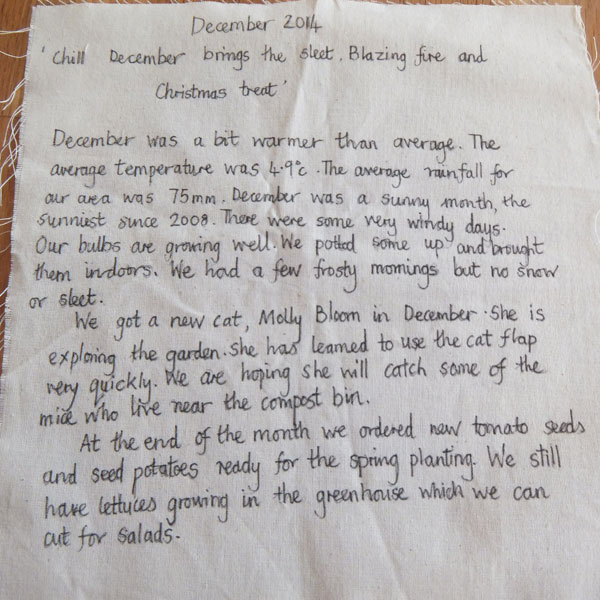 December 2014
'Chill December brings the sleet. Blazing fire and
Christmas treat'
December was a bit warmer than average. The
average temperature was 4.9°c. The average rainfall for
our area was 75mm. December was a sunny month, the
sunniest since 2008. There were some very windy days.
Our bulbs are growing well. We potted some up and brought
them indoors. We had a few frosty mornings but no snow
or sleet.
We got a new cat, Molly Bloom in December. She is
exploring the garden. She has learned to use the cat flap
very quickly. We are hoping she will catch some of the
mice who live near the compost bin.
At the end of the month we ordered new tomato seeds
and seed potatoes ready for the spring planting. We still
have lettuces growing in the greenhouse which we can
cut for salads.